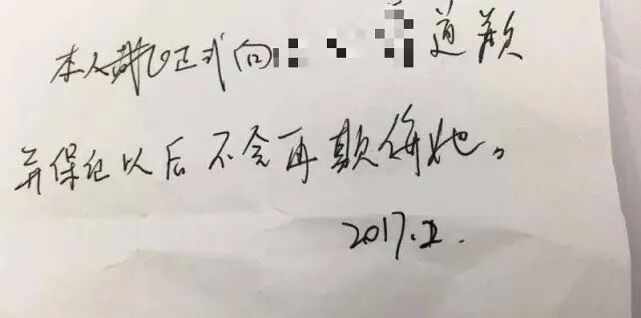 本人郑正式向 道歉
并保证以后不会再欺侮她。
2017.2.